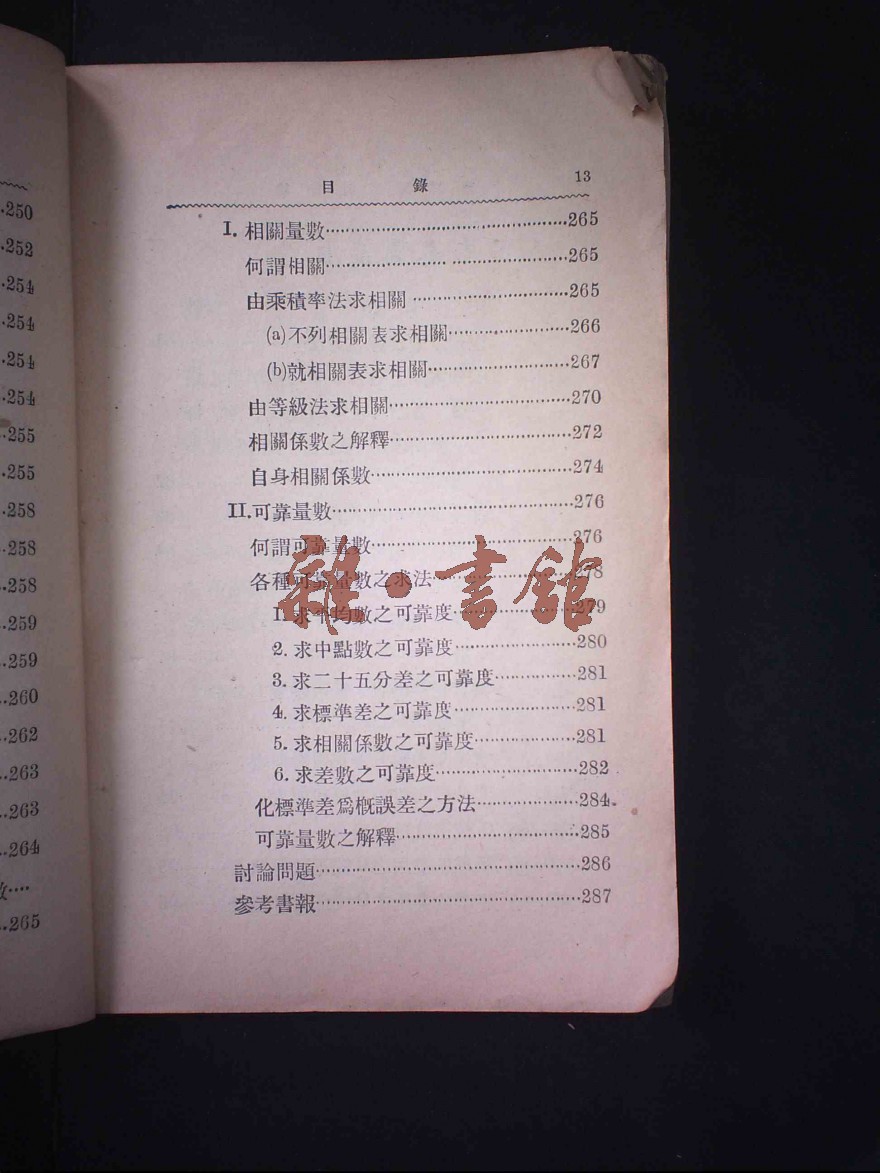 250
252
254
254
254
254
255
255
258
258
258
259
259
260
262
263
263
264
265
目錄 13
I. 相關量數 265
何謂相關 265
由乘積率法求相關 265
(a)不列相關表求相關 266
(b)就相關表求相關 267
由等級法求相關 270
相關係數之解釋 272
自身相關係數 274
II.可靠量數 276
何謂可靠量數 276
各種可靠量數之求法 278
1.求平均數之可靠度 279
2.求中點數之可靠度 280
3.求二十五分差之可靠度 281
4.求標準差之可靠度 281
5.求相關係數之可靠度 281
6.求差數之可靠度 282
化標準差爲概誤差之方法 284
可靠量數之解釋 285
討論問題 286
參考書報 287
雜·書館